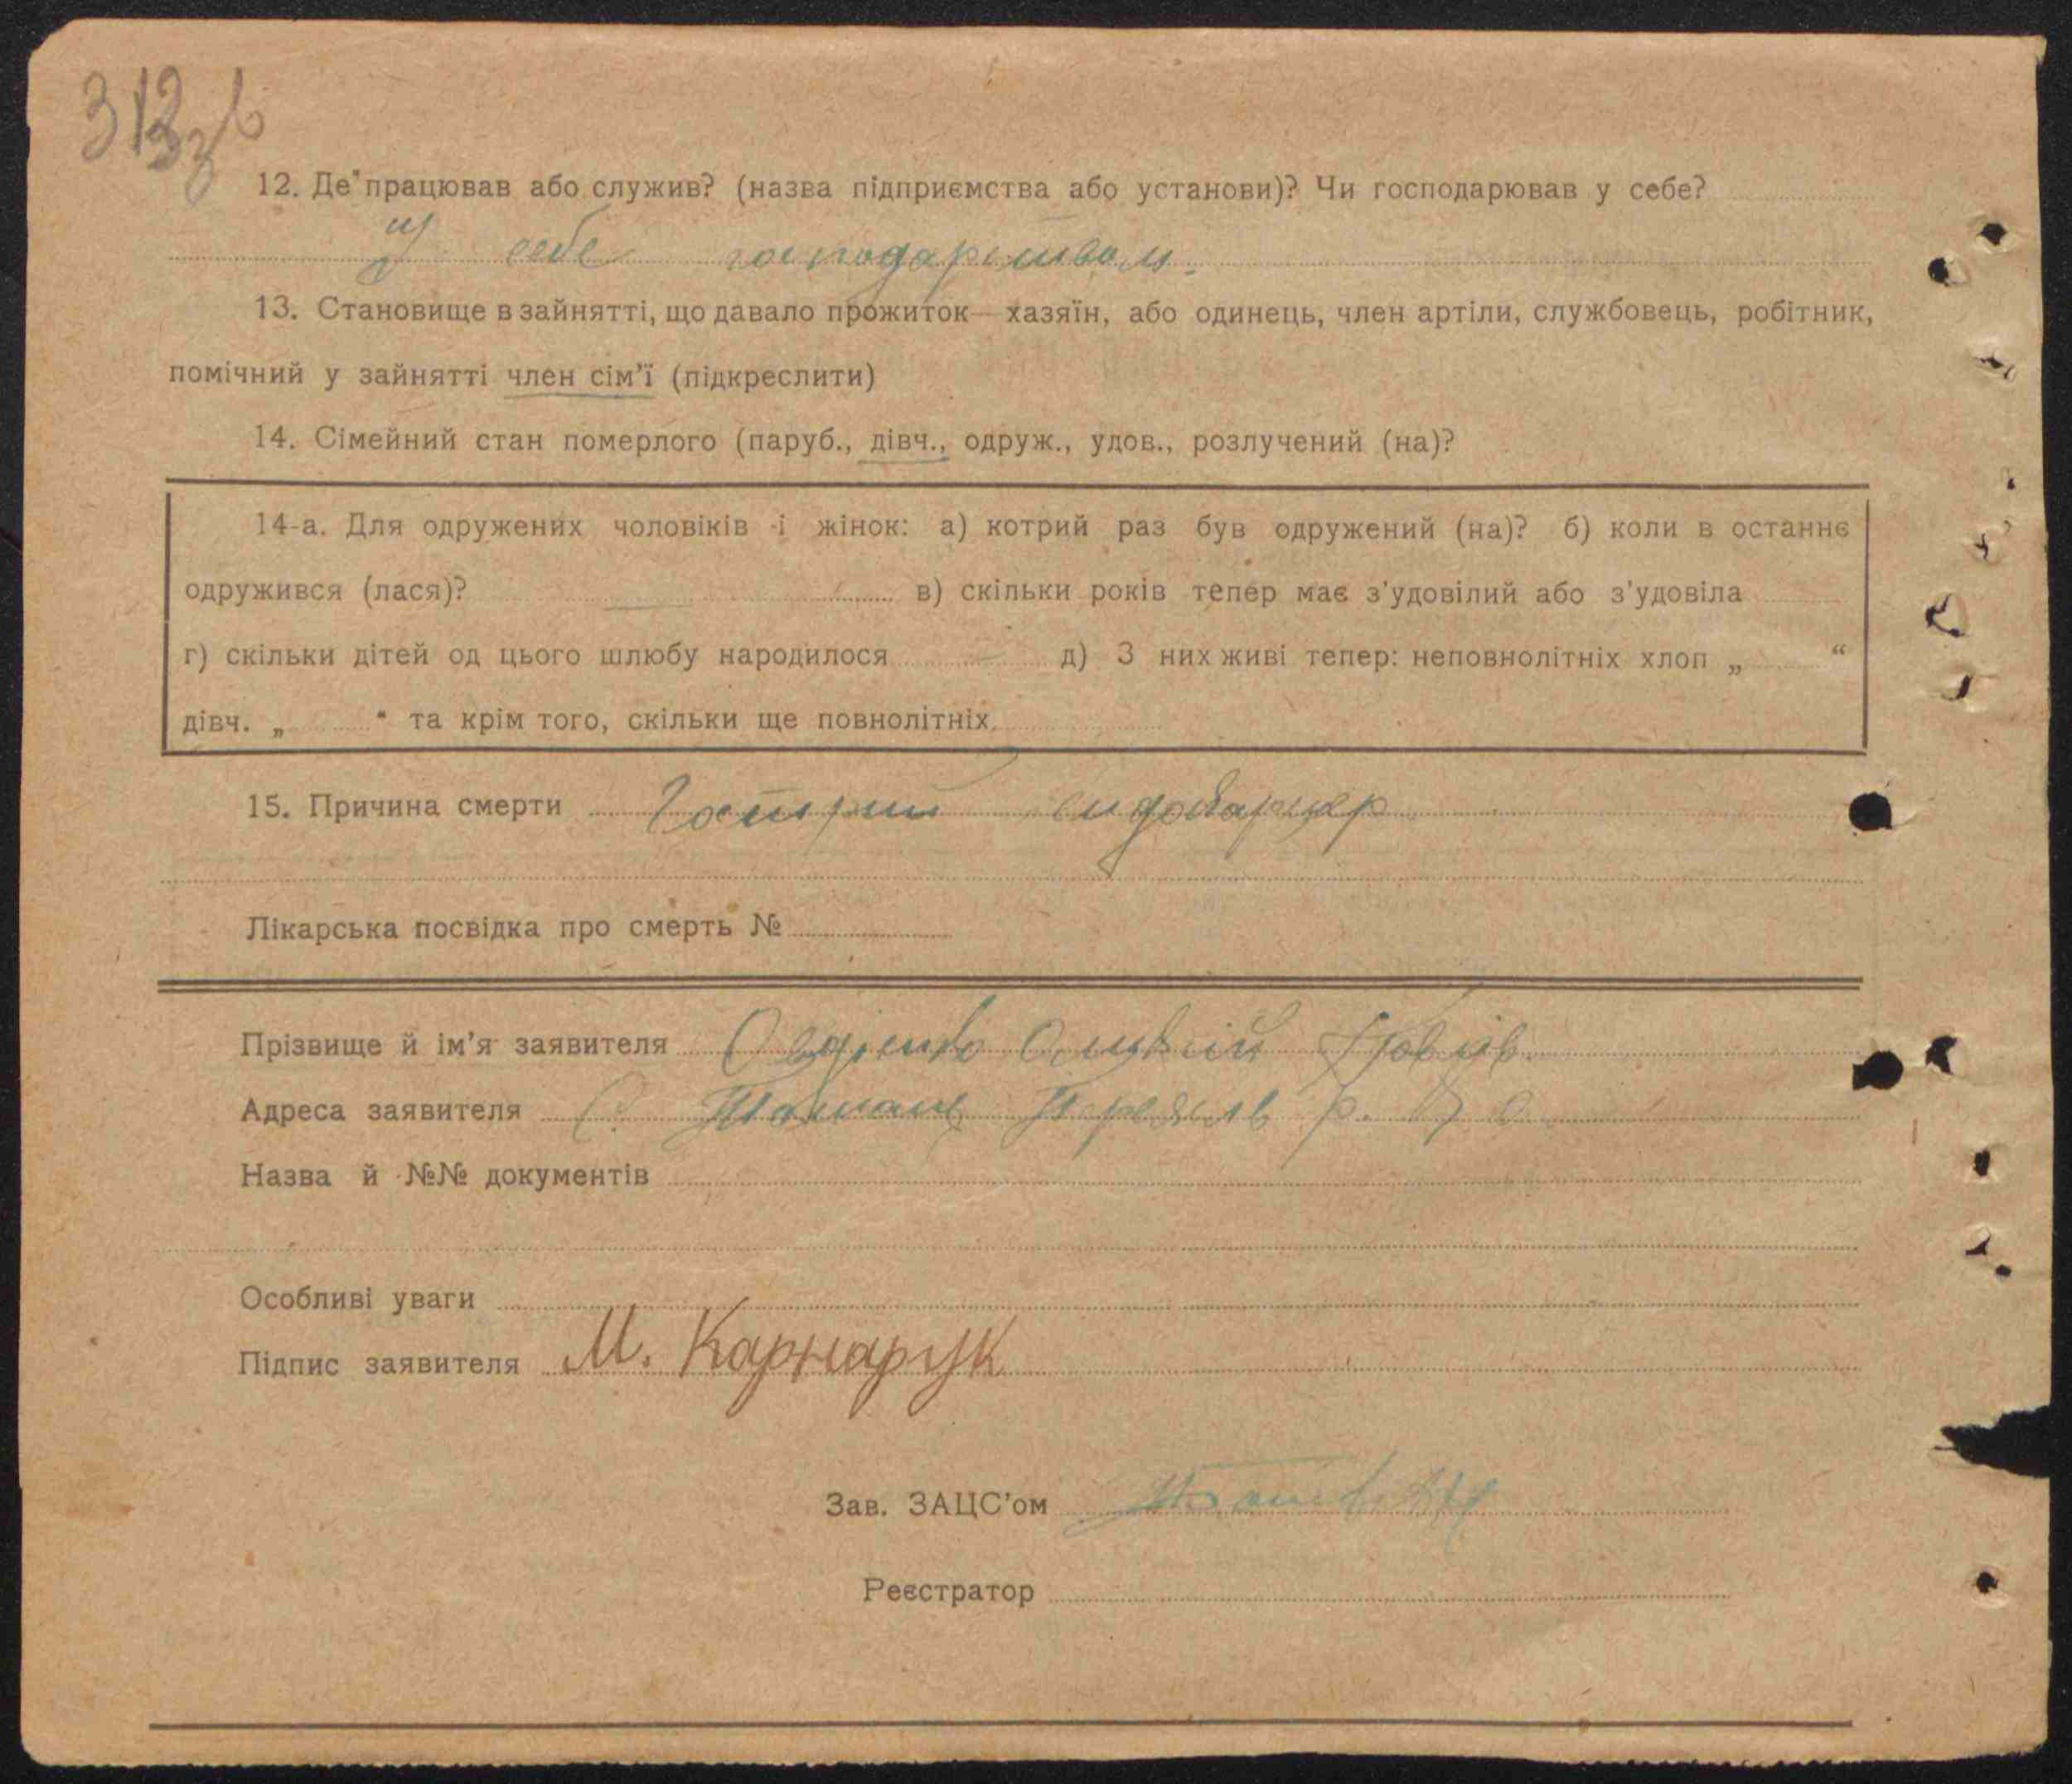 12. Де працював або служив? (назва підприємства або установи)? Чи господарював у себе?
У себе господарством.
13. Становище в зайнятті, що давало прожиток — хазяїн, або одинець, член артіли, службовець, робітник,
помічний у зайнятті член сім'ї (підкреслити)
14. Сімейний стан померлого (паруб., дівч., одруж., удов., розлучений (на)?
14-а. Для одружених чоловіків і жінок: а) котрий раз був одружений (на)? б) коли в останнє
одружився (лася)? в) скільки років тепер має з'удовілий або з'удовіла
г) скільки дітей од цього шлюбу народилося — д) З них живі тепер: неповнолітніх хлоп „ “
дівч. „ “ та крім того, скільки ще повнолітніх
15. Причина смерти Гострий
Лікарська посвідка про смерть №
Прізвище й ім'я заявителя Овдієнко
Адреса заявителя С.
Назва й №№ документів
Особливі уваги
Підпис заявителя М. Карнарук
Зав. ЗАЦС'ом
Реєстратор